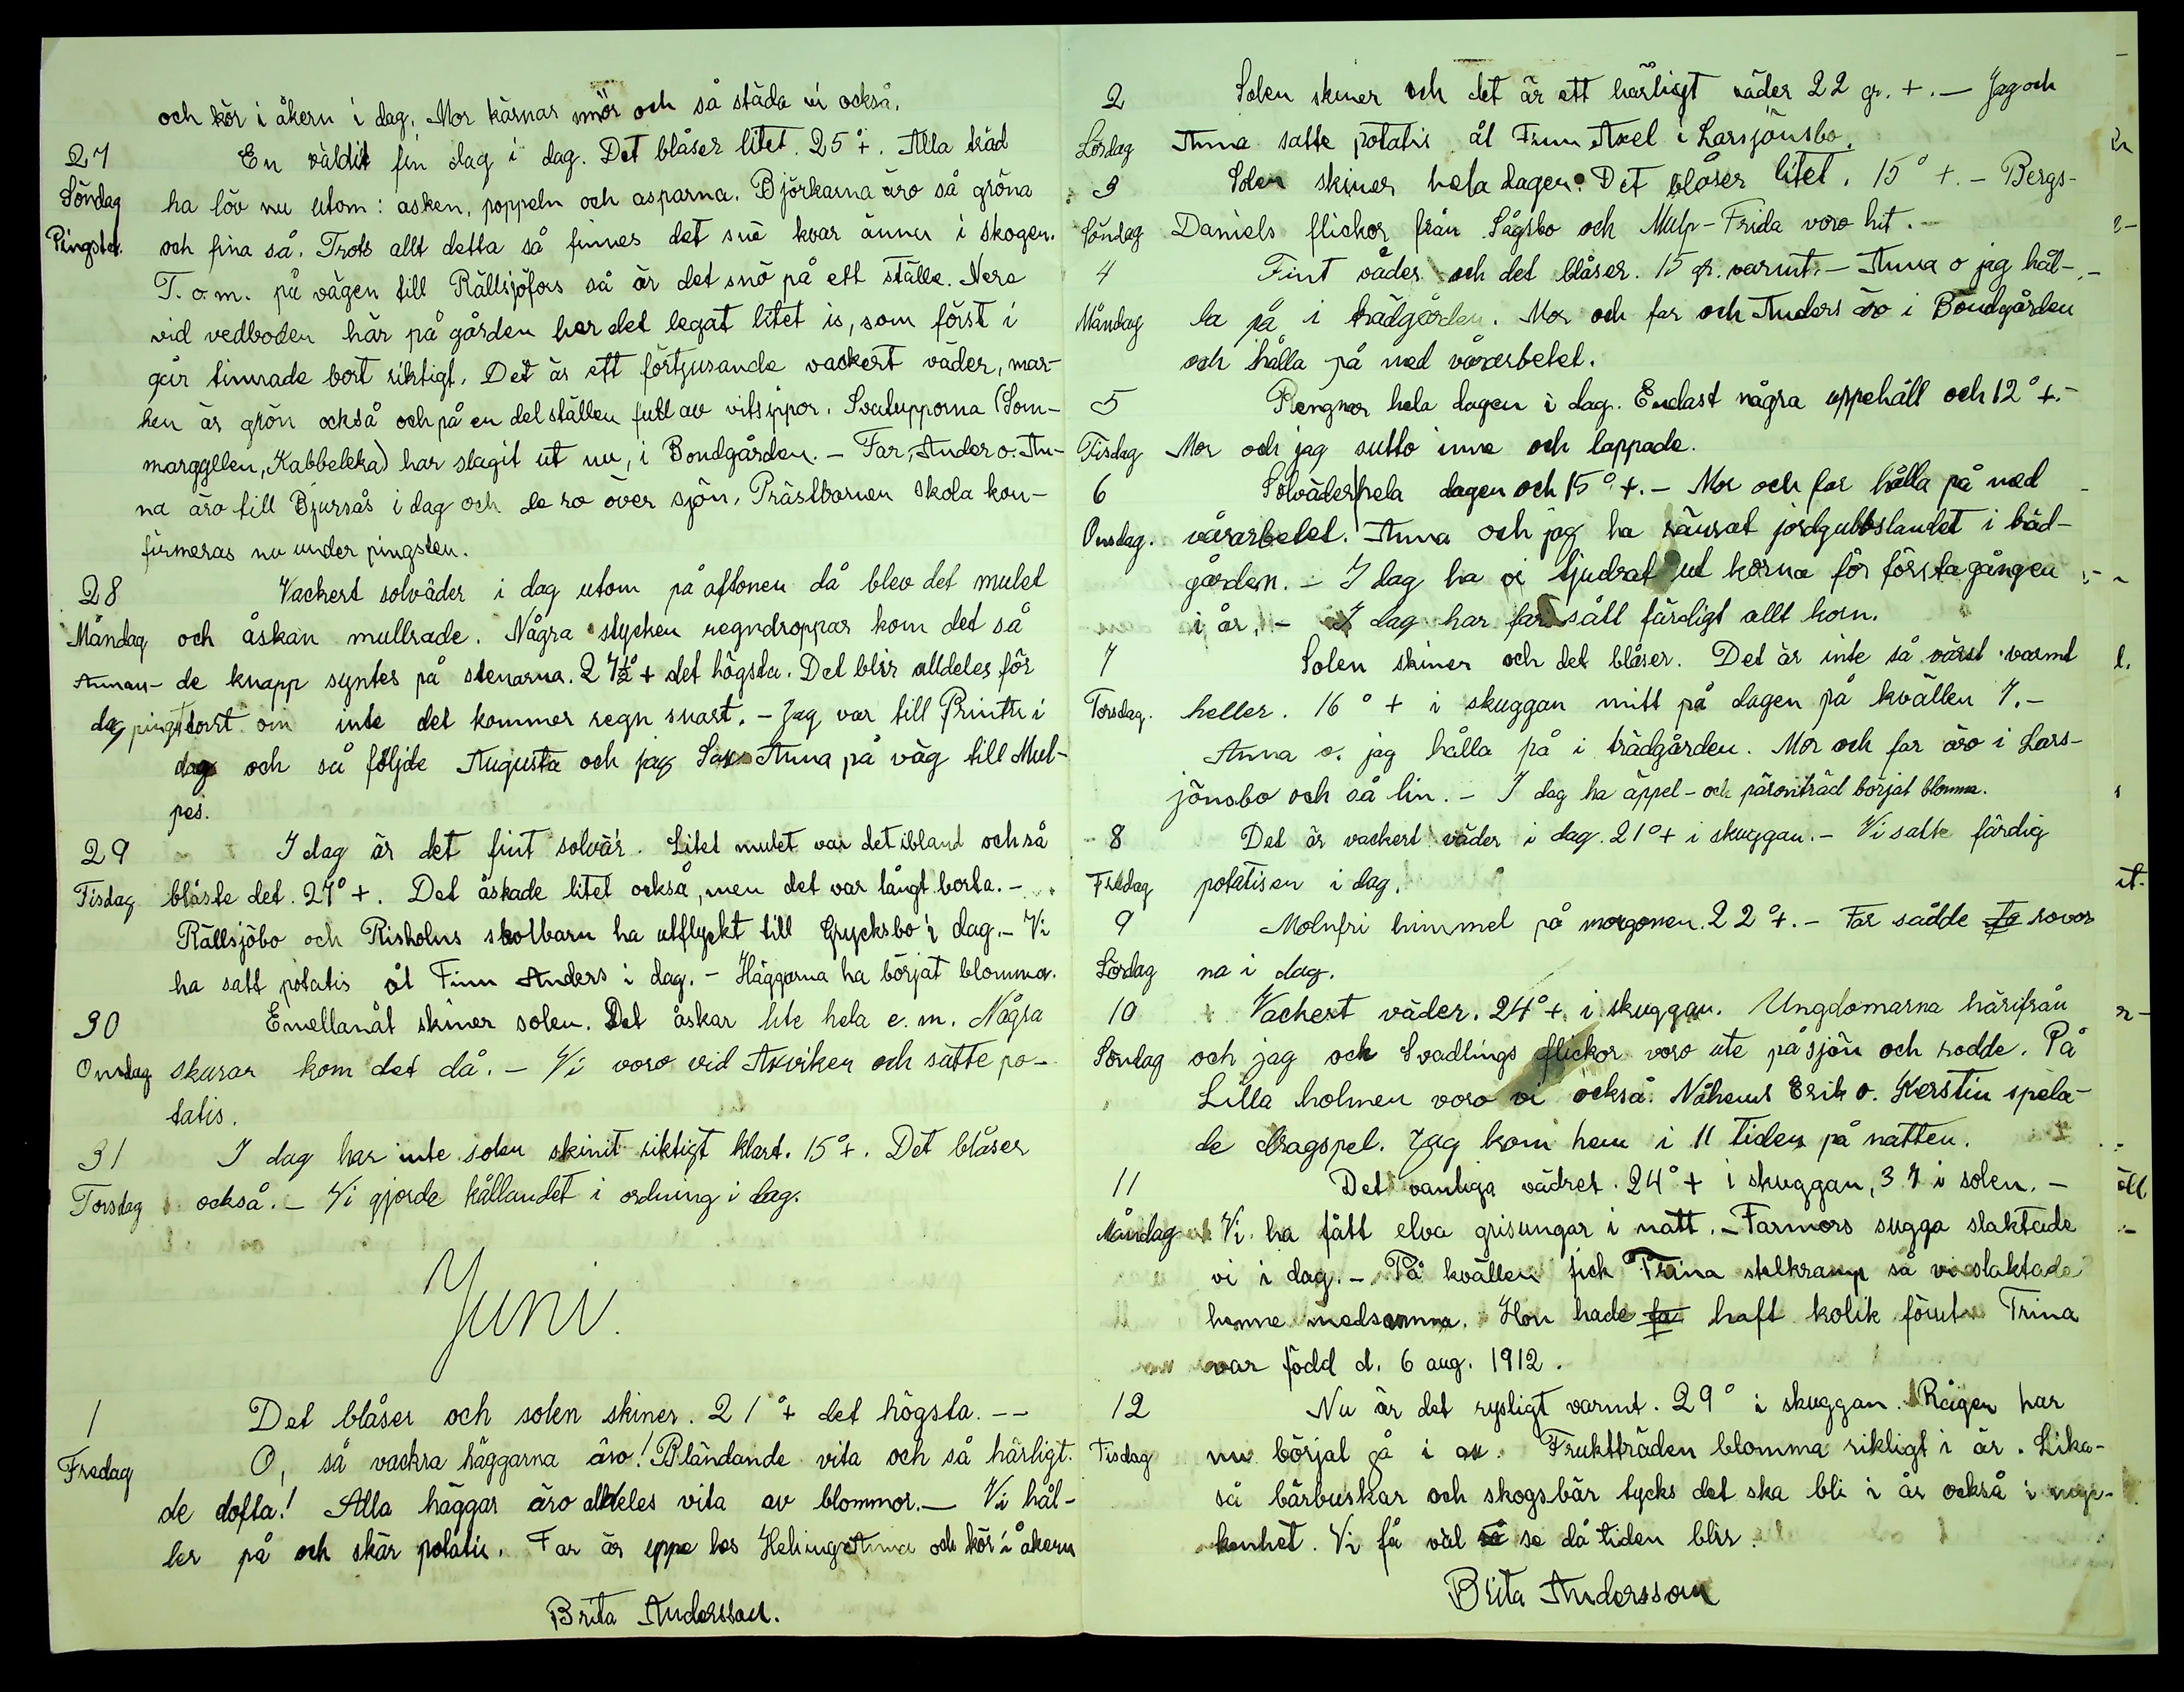 och kör i åkern i dag. Mor kärnar smör och så städa vi också.
27 En väldit fin dag i dag. Det blåser litet. 25°+. Alla träd
Söndag ha löv nu utom: asken, poppeln och asparna. Björkarna äro så gröna
Pingstd. och fina så. Trots allt detta så finnes det snö kvar ännu i skogen.
T.o.m. på vägen till Rällsjöfors så är det snö på ett ställe. Nere
vid vedboden här på gården har det legat litet is, som först i
går timrade bort riktigt. Det är ett förtjusande vackert väder, mar-
ken är grön också och på en del ställen full av vitsippor. Svalupporna (Som-
marggllen, Kabbeleka) har slagit ut nu, i Bondgården. - Far, Ander o. An-
na äro till Bjursås i dag och de ro över sjön. Prästbarnen skola kon-
firmeras nu under pingsten.
28 Vackert solväder i dag utom på aftonen då blev det mulet
Måndag och åskan mullrade. Några stycken regndroppar kom det så
Annan- de knapp syntes på stenarna. 27½°+ det högsta. Det blir alldeles för
dag pingst torrt om inte det kommer regn snart. - Jag var till Printts i
dag och så följde Augusta och jag Anna på väg till Mul-
pes.
29 I dag är det fint solvä'r. Litet mulet var det ibland och så
Tisdag blåste det. 27°+. Det åskade litet också, men det var långt borta. -
Rällsjöbo och Risholns skolbarn ha utflyckt till Grycksbo i dag. - Vi
ha satt potatis åt Finn Anders i dag. - Häggarna ha börjat blomma.
30 Emellanåt skiner solen. Det åskar lite hela e.m. Några
Onsdag skurar kom det då. - Vi voro vid Axviken och satte po-
tatis.
31 I dag har inte solen skinit riktigt klart. 15°+. Det blåser
Torsdag också. - Vi gjorde kållandet i ordning i dag.
Juni.
1 Det blåser och solen skiner. 21°+ det högsta. --
Fredag O, så vackra häggarna äro! Bländande vita och så härligt
de dofta! Alla häggar äro alldeles vita av blommor. - Vi hål-
ler på och skär potatis. Far är uppe hos Helings Anna och kör i åkern
Brita Andersson.
2 Solen skiner och det är ett härligt väder 22 gr. +. - Jag och
Lördag Anna satte potatis åt Finn Axel i Larsjönsbo.
3 Solen skiner hela dagen. Det blåser litet. 15° +. - Bergs-
Söndag Daniels flickor från Sågsbo och Mulp-Frida voro hit. -
4 Fint väder och det blåser. 15 gr. varmt. - Anna o jag hål-
Måndag la på i trädgården. Mor och far och Anders äro i Bondgården
och hålla på med vårarbetet.
5 Rengnar hela dagen i dag. Endast några uppehåll och 12°+. -
Tisdag Mor och jag sutto inne och lappade.
6 Solväder hela dagen och 15°+. - Mor och far hålla på med
Onsdag. vårarbetet. Anna och jag ha ränsat jordgubbslandet i träd-
gården. - I dag ha vi tjudrat ut korna för första gången
i år. - I dag har far sått färdigt allt korn.
7 Solen skiner och det blåser. Det är inte så värst varmt
Torsdag. heller. 16°+ i skuggan mitt på dagen på kvällen 7. -
Anna o. jag hålla på i trädgården. Mor och far äro i Lars-
jönsbo och så lin. - I dag ha äppel- och päronträd börjat blomma.
8 Det är vackert väder i dag. 21°+ i skuggan. - Vi satte färdig
Fredag potatisen i dag.
9 Molnfri himmel på morgonen. 22°+. - Far sådde fa rovor
Lördag na i dag.
10 Vackert väder. 24°+ i skuggan. Ungdomarna härifrån
Söndag och jag och Svadlings flickor voro ute på sjön och rodde. På
Lilla holmen voro vi också. Erik o. Kerstin spela-
de dragspel. Jag kom hem i 11 tiden på natten.
11 Det vanliga vädret. 24°+ i skuggan, 37 i solen. -
Måndag Vi ha fått elva grisungar i natt. - Farmors sugga slaktade
vi i dag. - På kvällen fick Trina stelkramp så vi slaktade
henne medsamma. Hon hade fa haft kolik förut. Trina
var född d. 6 aug. 1912.
12 Nu är det rysligt varmt. 29° i skuggan. Rågen har
Tisdag nu börjat gå i ax. Fruktträden blomma rikligt i år. Lika-
så bärbuskar och skogsbär tycks det ska bli i år också i myc-
kenhet. Vi få väl så se då tiden blir.
Brita Andersson